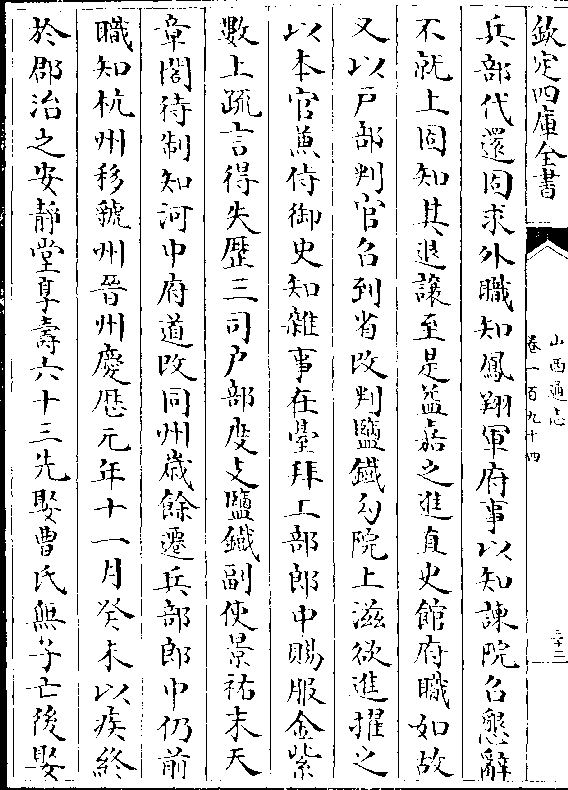 欽定四庫全書
山西通志
卷一百九十四
三十三
兵部代還固求外職知鳳翔軍府事以知諫院召懇辭
不就上固知其退讓至是益嘉之進直史館府職如故
又以戸部判官召到省改判鹽鐵勾院上滋欲進擢之
以本官兼侍御史知雜事在臺拜工部郎中賜服金紫
數上疏言得失歴三司户部度支鹽鐵副使景祐末天
章閣待制知河中府道改同州歳餘遷兵部郎中仍前
職知杭州移虢州晉州慶厯元年十一月癸未以疾終
於郡治之安靜堂享壽六十三先娶曹氏無子亡後娶